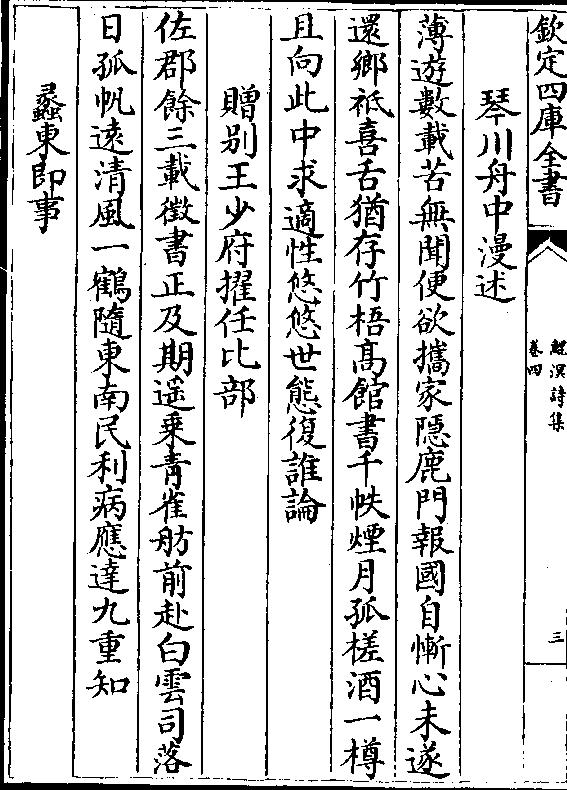 欽定四庫全書
鯤溟詩集
卷四
三
琴川舟中漫述
薄遊數載苦無聞便欲攜家隠鹿門報國自慚心未遂
還鄉祇喜舌猶存竹梧髙館書千帙煙月孤槎酒一樽
且向此中求適性悠悠世態復誰論
贈别王少府擢任比部
佐郡餘三載徵書正及期遥乗青雀舫前赴白雲司落
日孤帆遠清風一鶴隨東南民利病應達九重知
蠡東即事